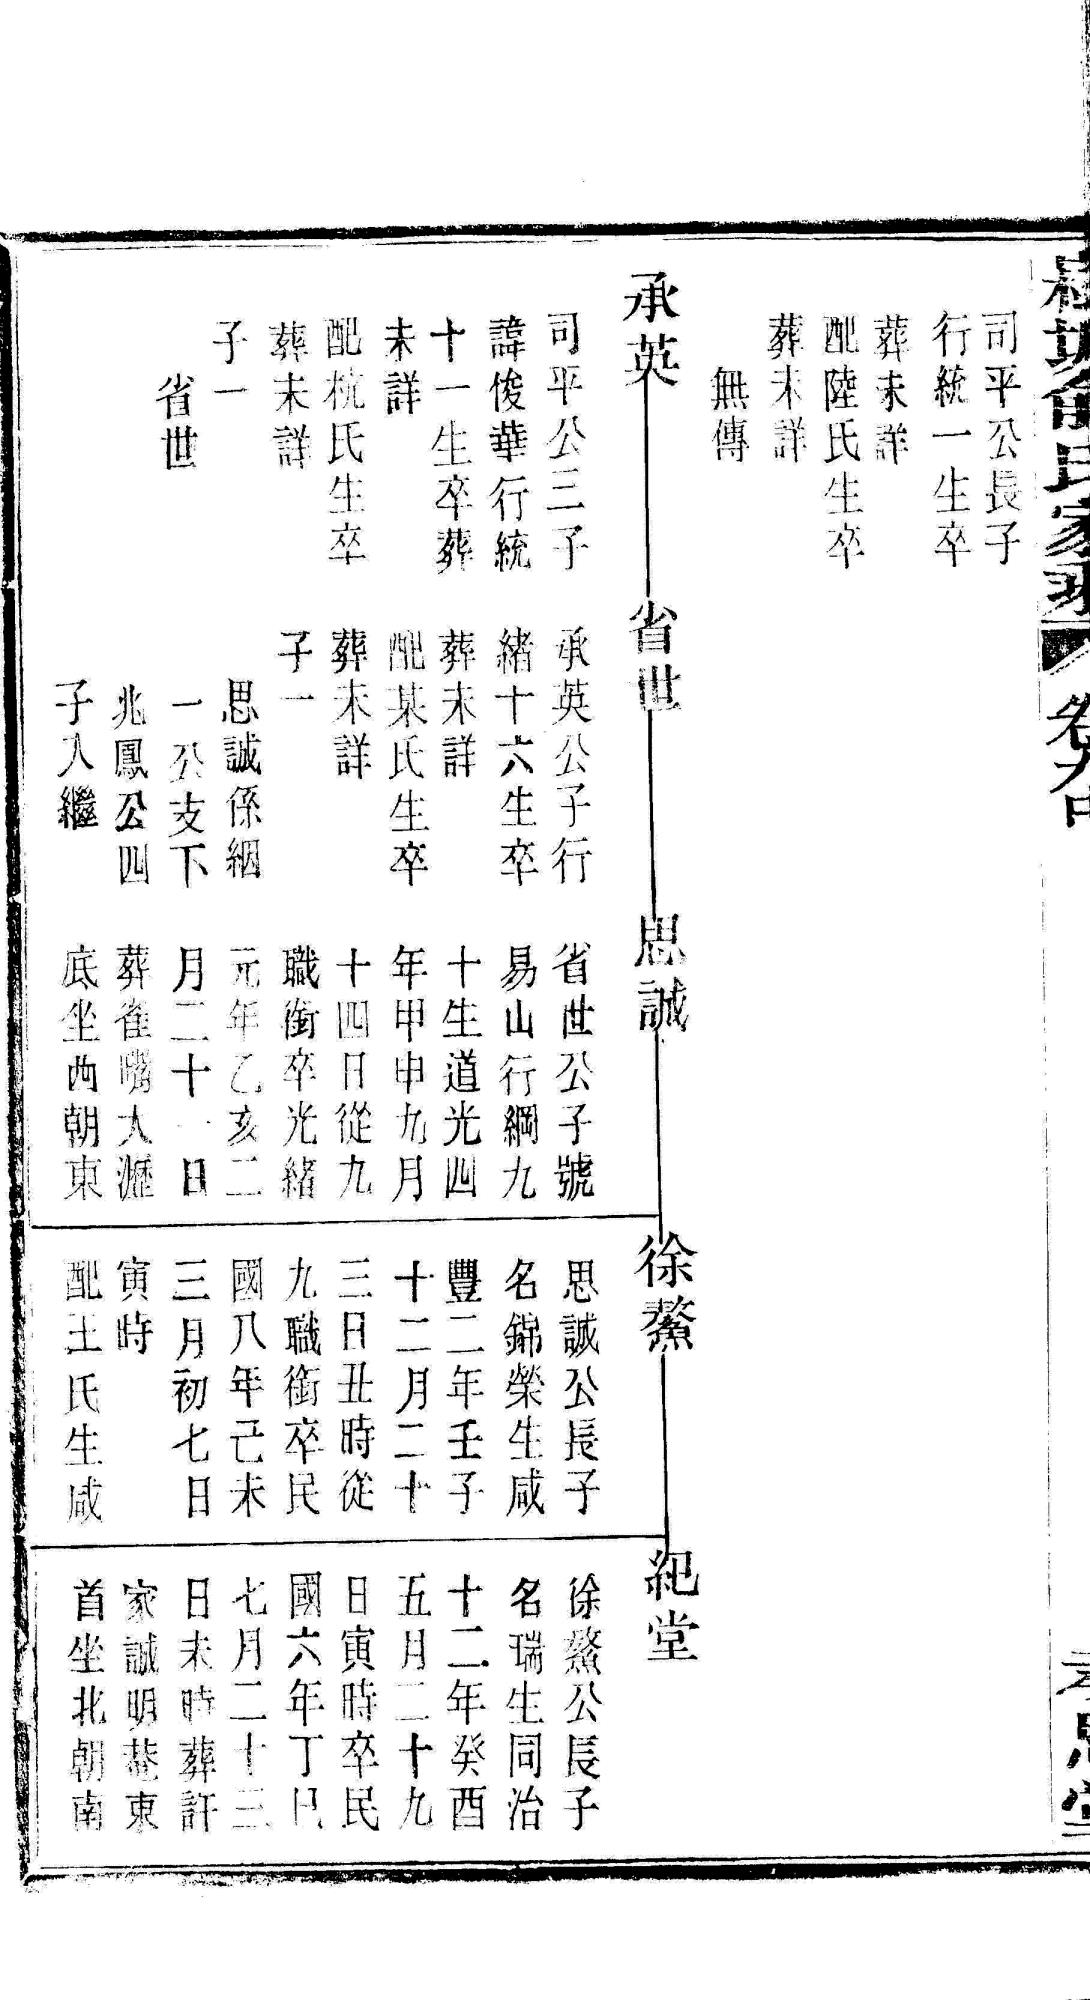 氏家乘
卷九中
孝思堂
司平公長子
行統一生卒
葬未詳
配陸氏生卒
葬未詳
無傳
承英
司平公三子
諱俊華行統
十一生卒葬
未詳
配杭氏生卒
葬未詳
子一
省世
省世
承英公子行
緒十六生卒
葬未詳
配某氏生卒
葬未詳
子一
思誠係絪
一公支下
兆鳳公四
子入繼
思誠
省世公子號
易山行綱九
十生道光四
年甲申九月
十四日從九
職銜卒光緒
元年乙亥二
月二十一日
葬雀嘴大瀝
底坐西朝東
徐鰲
思誠公長子
名錦榮生咸
豐二年壬子
十二月二十
三日丑時從
九職銜卒民
國八年己未
三月初七日
寅時
配王氏生咸
紀堂
徐鰲公長子
名瑞生同治
十二年癸酉
五月二十九
日寅時卒民
國六年丁巳
七月二十三
日未時葬許
家誠明菴東
首坐北朝南